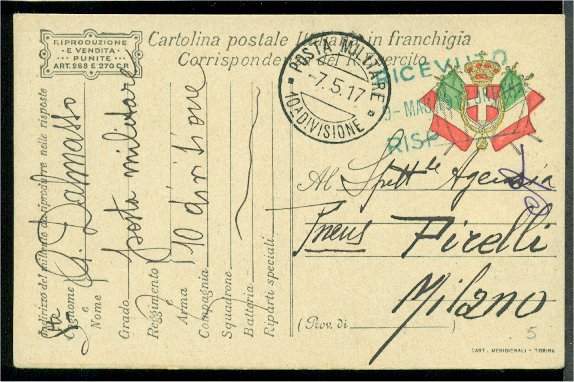 RIPRODUZIONE
E VENDITA
PUNITE
ART. 268 E 270 C.P.
Cartolina postale Italiana in franchigia
Corrispondenza del R. Esercito
POSTA MILITARE
-7.5.17
10A DIVISIONE
RICEVUTO
9 - MAG
RISP
Indirizzo del mittente da riprodurre nelle risposte
Cognome e Nome Dalmasso
Grado
Reggimento posta militare
Arma e
Compagnia 10 divisione
Squadrone
Batteria
Riparti speciali
Al Spett.le Agenzia
Pneus Pirelli
Milano
(Prov. di
5
CART. MERIDIONALI - TORINO